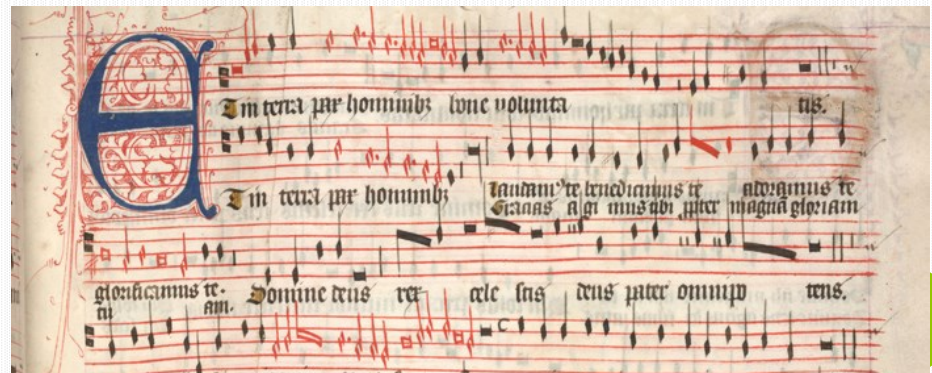 Et in terra pax hominibꝫ bone volunta tis.
Et in terra pax hominibꝫ laudamꝰ te benedicimus te adoramus te
Gracias agimus tibi ꝓpter magnā gloriam
glorificamus te. Domine deus rex cele stis deus pater omnipo tens.
tu am.